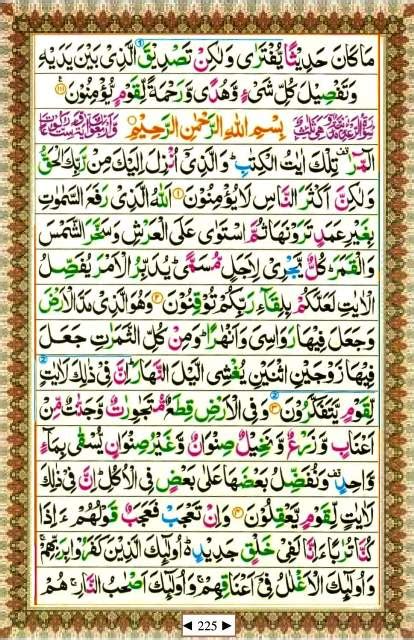 مَا كَانَ حَدِيْثًا يُّفْتَرٰى وَلٰكِنْ تَصْدِيْقَ الَّذِىْ بَيْنَ يَدَيْهِ
وَتَفْصِيْلَ كُلِّ شَىْءٍ وَّهُدًى وَّرَحْمَةً لِّقَوْمٍ يُّؤْمِنُوْنَ ۝۱۱۱
بِسْمِ اللّٰهِ الرَّحْمٰنِ الرَّحِيْمِ
الٓمّٓرٰ تِلْكَ اٰيٰتُ الْكِتٰبِ ؕ وَالَّذِىْۤ اُنْزِلَ اِلَيْكَ مِنْ رَّبِّكَ الْحَقُّ
وَلٰكِنَّ اَكْثَرَ النَّاسِ لَا يُؤْمِنُوْنَ ۝۱ اَللّٰهُ الَّذِىْ رَفَعَ السَّمٰوٰتِ
بِغَيْرِ عَمَدٍ تَرَوْنَهَا ثُمَّ اسْتَوٰى عَلَى الْعَرْشِ وَسَخَّرَ الشَّمْسَ
وَالْقَمَرَ ؕ كُلٌّ يَّجْرِىْ لِاَجَلٍ مُّسَمًّى ؕ يُدَبِّرُ الْاَمْرَ يُفَصِّلُ
الْاٰيٰتِ لَعَلَّكُمْ بِلِقَآءِ رَبِّكُمْ تُوْقِنُوْنَ ۝۲ وَهُوَ الَّذِىْ مَدَّ الْاَرْضَ
وَجَعَلَ فِيْهَا رَوَاسِىَ وَاَنْهٰرًا ؕ وَمِنْ كُلِّ الثَّمَرٰتِ جَعَلَ
فِيْهَا زَوْجَيْنِ اثْنَيْنِ يُغْشِى الَّيْلَ النَّهَارَ ؕ اِنَّ فِىْ ذٰلِكَ لَاٰيٰتٍ
لِّقَوْمٍ يَّتَفَكَّرُوْنَ ۝۳ وَفِى الْاَرْضِ قِطَعٌ مُّتَجٰوِرٰتٌ وَّجَنّٰتٌ مِّنْ
اَعْنَابٍ وَّزَرْعٌ وَّنَخِيْلٌ صِنْوَانٌ وَّغَيْرُ صِنْوَانٍ يُّسْقٰى بِمَآءٍ
وَّاحِدٍ وَنُفَضِّلُ بَعْضَهَا عَلٰى بَعْضٍ فِى الْاُكُلِ ؕ اِنَّ فِىْ ذٰلِكَ
لَاٰيٰتٍ لِّقَوْمٍ يَّعْقِلُوْنَ ۝۴ وَاِنْ تَعْجَبْ فَعَجَبٌ قَوْلُهُمْ ءَاِذَا
كُنَّا تُرٰبًا ءَاِنَّا لَفِىْ خَلْقٍ جَدِيْدٍ ؕ اُولٰٓئِكَ الَّذِيْنَ كَفَرُوْا بِرَبِّهِمْ
وَاُولٰٓئِكَ الْاَغْلٰلُ فِىْۤ اَعْنَاقِهِمْ وَاُولٰٓئِكَ اَصْحٰبُ النَّارِ هُمْ
◀ 225 ▶